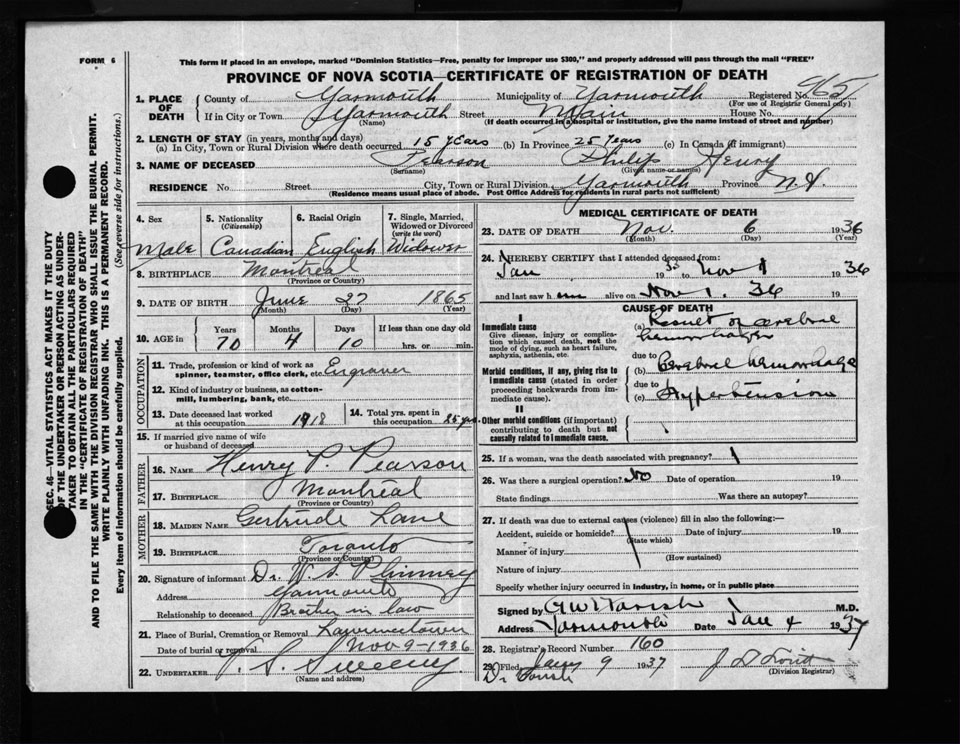 FORM 6
This form if placed in an envelope, marked "Dominion Statistics—Free, penalty for improper use $300," and properly addressed will pass through the mail "FREE"
PROVINCE OF NOVA SCOTIA—CERTIFICATE OF REGISTRATION OF DEATH
1. PLACE OF DEATH
County of Yarmouth Municipality of Yarmouth Registered No.
(For use of Registrar General only)
If in City or Town Yarmouth Street Main House No.
(Name) (If death occurred in a hospital or institution, give the name instead of street and number)
2. LENGTH OF STAY (in years, months and days)
(a) In City, Town or Rural Division where death occurred 15 years (b) In Province 25 years (c) In Canada (if immigrant)
3. NAME OF DECEASED Pearson Philip Henry
(Surname) (Given name or names)
RESIDENCE No. Street City, Town or Rural Division Yarmouth Province N.S.
(Residence means usual place of abode. Post Office Address for residents in rural parts not sufficient)
4. Sex
Male
5. Nationality
(Citizenship)
Canadian
6. Racial Origin
English
7. Single, Married, Widowed or Divorced
(write the word)
Widower
8. BIRTHPLACE Montreal
(Province or Country)
9. DATE OF BIRTH June 27 1865
(Month) (Day) (Year)
10. AGE in
Years Months Days If less than one day old
70 4 10 hrs. or min.
OCCUPATION
11. Trade, profession or kind of work as spinner, teamster, office clerk, etc. Engraver
12. Kind of industry or business, as cotton-mill, lumbering, bank, etc.
13. Date deceased last worked at this occupation 1918
14. Total yrs. spent in this occupation 25 yrs.
15. If married give name of wife or husband of deceased
FATHER
16. NAME Henry P. Pearson
17. BIRTHPLACE Montreal
(Province or Country)
MOTHER
18. MAIDEN NAME Gertrude Lane
19. BIRTHPLACE Toronto
(Province or Country)
20. Signature of informant Dr. W. S. Phinney
Address Yarmouth
Relationship to deceased Brother in law
21. Place of Burial, Cremation or Removal Lawrencetown
Date of burial or removal Nov 9—1936
22. UNDERTAKER Sweeny
(Name and address)
MEDICAL CERTIFICATE OF DEATH
23. DATE OF DEATH Nov. 6 1936
(Month) (Day) (Year)
24. I HEREBY CERTIFY that I attended deceased from:
Jan 1935 to Nov 1 1936
and last saw him alive on Nov 1. 36 19
CAUSE OF DEATH
I
Immediate cause
Give disease, injury or complication which caused death, not the mode of dying, such as heart failure, asphyxia, asthenia, etc.
(a) Result of cerebral hemorrhage
due to
Morbid conditions, if any, giving rise to immediate cause (stated in order proceeding backwards from immediate cause).
(b) Cerebral hemorrhage
due to
(c) Hypertension
II
Other morbid conditions (if important) contributing to death but not causally related to immediate cause.
25. If a woman, was the death associated with pregnancy?
26. Was there a surgical operation? No Date of operation 19
State findings Was there an autopsy?
27. If death was due to external causes (violence) fill in also the following:—
Accident, suicide or homicide? Date of injury 19
(State which)
Manner of injury
(How sustained)
Nature of injury
Specify whether injury occurred in industry, in home, or in public place
Signed by M.D.
Address Yarmouth Date Jan 4 1937
28. Registrar's Record Number 160
29. Filed Jany 9 1937
(Division Registrar)
SEC. 46—VITAL STATISTICS ACT MAKES IT THE DUTY OF THE UNDERTAKER OR PERSON ACTING AS UNDERTAKER TO OBTAIN ALL THE PARTICULARS REQUIRED IN THE "CERTIFICATE OF REGISTRATION OF DEATH"
AND TO FILE THE SAME WITH THE DIVISION REGISTRAR WHO SHALL ISSUE THE BURIAL PERMIT.
WRITE PLAINLY WITH UNFADING INK. THIS IS A PERMANENT RECORD.
Every item of Information should be carefully supplied. (See reverse side for instructions.)